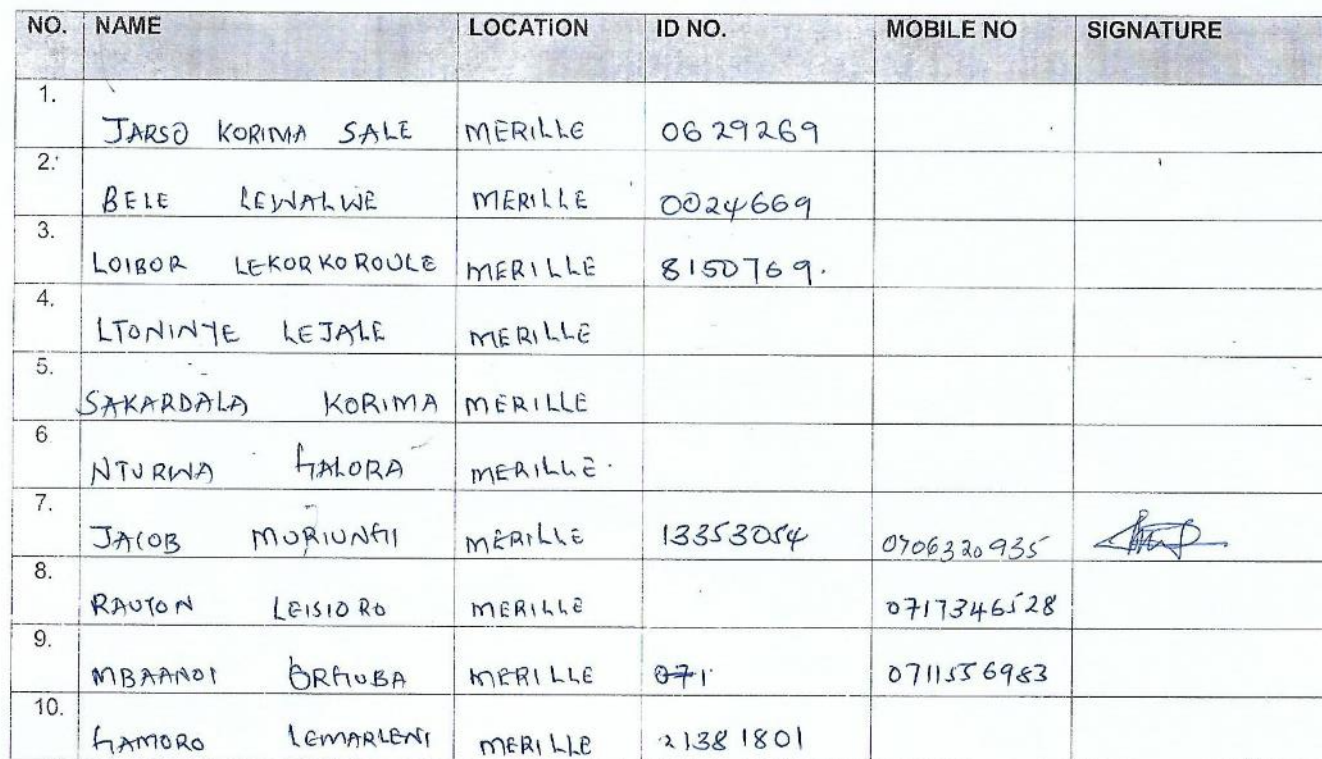 NO. NAME LOCATION ID NO. MOBILE NO SIGNATURE
1. JARSO KORIMA SALE MERILLE 0629269
2. BELE LEWALWE MERILLE 0024669
3. LOIBOR LEKORKOROULE MERILLE 8150769.
4. LTONINYE LEJALE MERILLE
5. SAKARDALA KORIMA MERILLE
6 NTURWA GALORA MERILLE.
7. JACOB MURIUNGI MERILLE 13353054 0706320935
8. RAUYON LEISIORO MERILLE 0717346528
9. MBAANDI ORGUBA MERILLE 071 0711556983
10. GAMORO LEMARLENI MERILLE 21381801